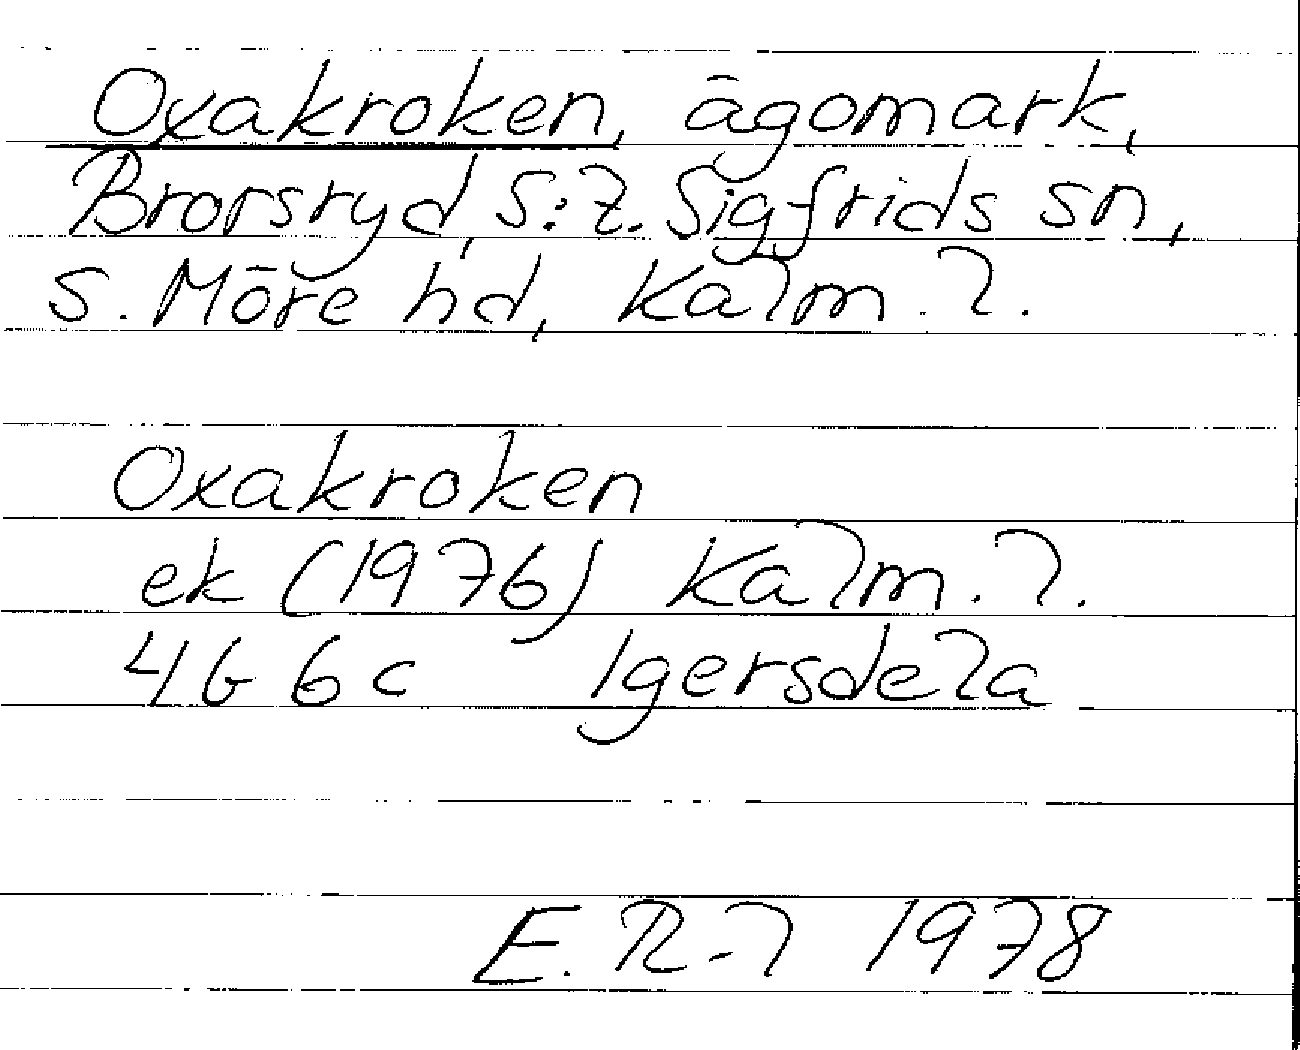 Oxakroken, ägomark,
Brorsryd, S:t. Sigfrids sn,
S. Möre hd, Kalm. l.
Oxakroken
ek (1976) Kalm. l.
4G 6c Igersdela
E. R-l 1978